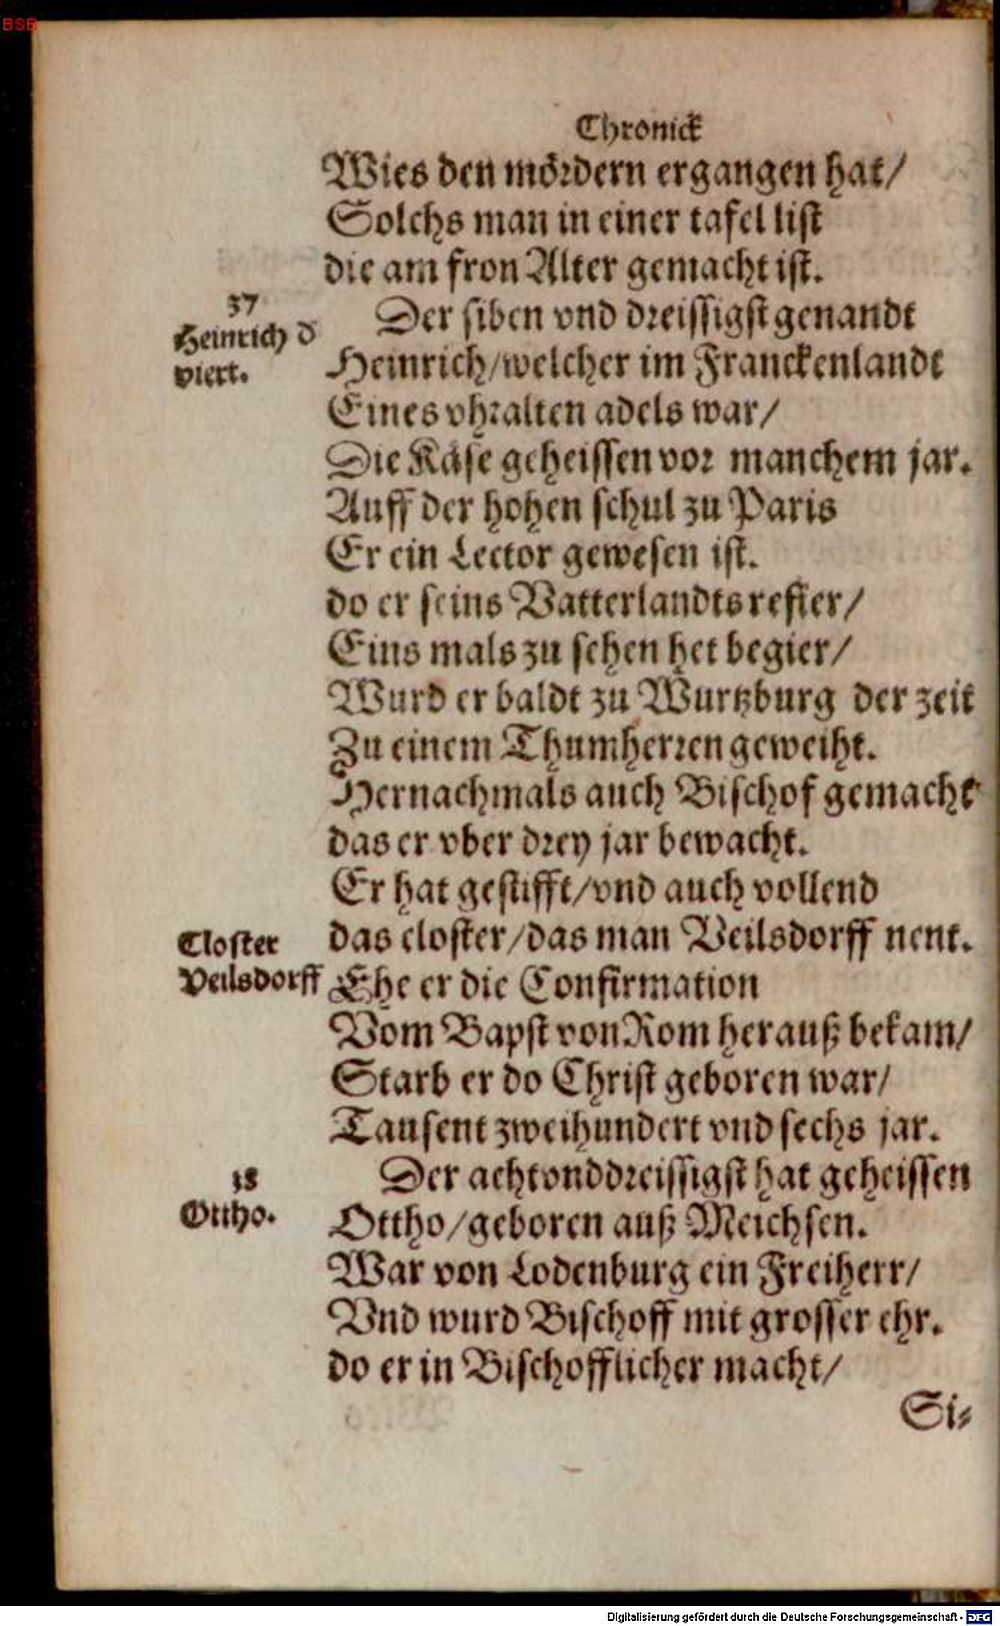 BSB
Chronick
Wies den mördern ergangen hat/
Solchs man in einer tafel list
die am fron Alter gemacht ist.
37
Heinrich d
viert.
Der siben vnd dreissigst genandt
Heinrich/welcher im Franckenlandt
Eines vhralten adels war/
Die Käse geheissen vor manchem jar.
Auff der hohen schul zu Paris
Er ein Lector gewesen ist.
do er seins Vatterlandts refier/
Eins mals zu sehen het begier/
Wurd er baldt zu Wurtzburg der zeit
Zu einem Thumherren geweiht.
Hernachmals auch Bischof gemacht
das er vber drey jar bewacht.
Er hat gestifft/vnd auch vollend
Closter
Veilsdorff
das closter/das man Veilsdorff nent.
Ehe er die Confirmation
Vom Bapst von Rom herauß bekam/
Starb er do Christ geboren war/
Tausent zweihundert vnd sechs jar.
38
Ottho.
Der achtvnddreissigst hat geheissen
Ottho/geboren auß Meichsen.
War von Lodenburg ein Freiherr/
Vnd wurd Bischoff mit grosser ehr.
do er in Bischofflicher macht/
Si⸗
Digitalisierung gefördert durch die Deutsche Forschungsgemeinschaft - DFG